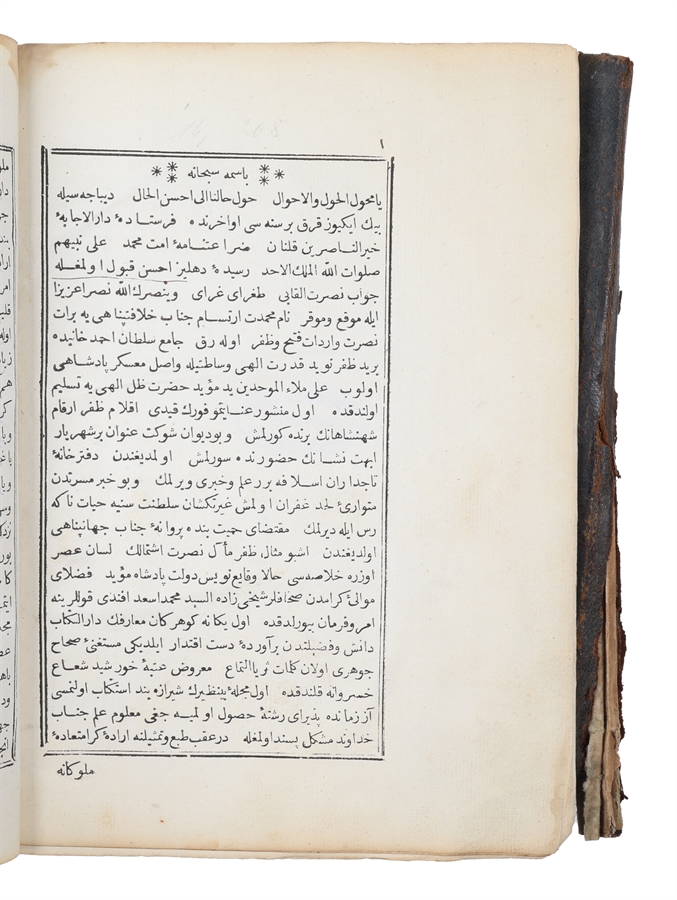 ١
باسمه سبحانه
يا محول الحول والاحوال حول حالنا الى احسن الحال ديباجه سيله
بيك ايكيوز قرق برسنه سى اواخرنده فرستادهٔ دار الاجابهٔ
خير الناصرين قلنان ضراعتنامهٔ امت محمد على نبيهم
صلوات الله الملك الاحد رسيدهٔ دهليز احسن قبول اولمغله
جواب نصرت القابى طغراى غراى وينصرك الله نصرا عزيزا
ايله موقع وموقر نام محمدت ارتسام جناب خلافتپناهى يه برات
نصرت واردات فتح وظفر اوله رق جامع سلطان احمد خانيده
بريد ظفر نويد قدرت الهى وساطتيله واصل معسكر پادشاهى
اولوب على ملاء الموحدين يد مؤيد حضرت ظل الهى يه تسليم
اولندقده اول منشور عنايتموفورك قيدى اقلام ظفر ارقام
شهنشاهانك برنده كورلمش وبو ديوان شوكت عنوان برشهريار
ابهت نشانك حضورنده سورلمش اولمديغندن دفترخانهٔ
تاجداران اسلافه بررعلم وخبرى ويرلمك وبو خبر مسرتدن
متوارىٔ لحد غفران اولمش غيرتكشان سلطنت سنيه حيات تاكه
رس ايله ديرلمك مقتضاى حميت بنده پروانهٔ جناب جهانپناهى
اولديغندن اشبو مثال ظفر مآل نصرت اشتمالك لسان عصر
اوزره خلاصه سى حالا وقايع نويس دولت پادشاه مؤيد فضلاى
موالىٔ كرامدن صحافلر شيخى زاده السيد محمد اسعد افندى قوللرينه
امر وفرمان بيورلدقده اول يكانه كوهركان معارفك دار الكتاب
دانش وفضيلتدن برآوردهٔ دست اقتدار ايلديكى مستغنىٔ صحاح
جوهرى اولان كلمات ثريا التماع معروض عتبهٔ خورشيد شعاع
خسروانه قلندقده اول مجلهٔ بينظيرك شيرازه بند استكتاب اولنمسى
آز زمانده پذيراى رشتهٔ حصول اولميه جغى معلوم علم جناب
خداوند مشكل پسند اولمغله درعقب طبع وتمثيلنه ارادهٔ كرامتعادهٔ
ملوكانه